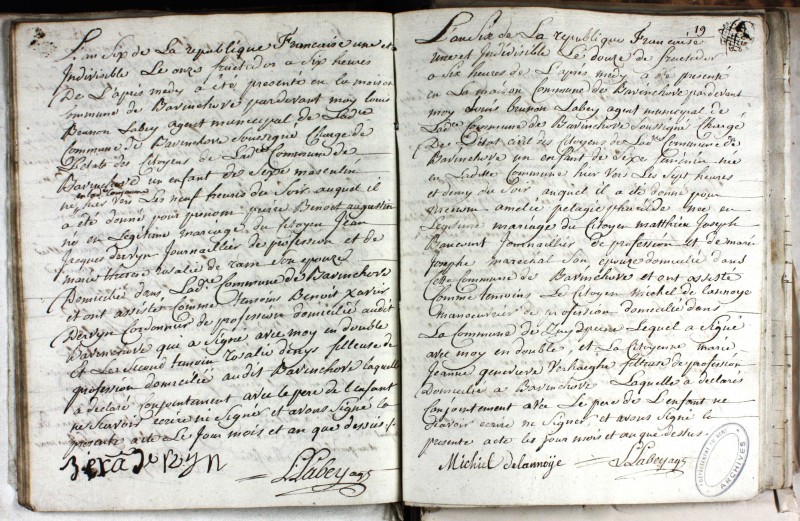 L'an Six de La republique Francaise une et
Indivisible Le onze fructidor a Six heures
De L'apres medy a été presenté en la maison
Commune de Bavinchove pardevant moy louis
Bennon Labey agent municipal de Ladce
Commune de Bavinchove Soussigné Chargé de
L'etats des Citoyens de Ladce Commune de
Bavinchove un enfant de Sexe masculin
né hier vers Les neuf heures du Soir auquel il
a été donné pour prenom pierre Benoit augustin
né en Legitime mariage du Citoyen Jean
Jacques Dervyn Journaillier de profession et de
marie therese rosalie de ram Son epouse
Domicilié dans Ladce Commune de Bavinchove
et ont assisté Comme temoins Benoit Xavier
Dervyn Cordonnier de profession domicilié audit
Bavinchove qui a Signé avec moy en double
et Le Second temoin rosalie denys filleuse de
profession domiciliée audit Bavinchove laquelle
a declaré conjointement avec le pere de l'enfant
ne Scavoir ecrire ne Signer et avons Signé la
presente acte Le Jour mois et an que dessus ./.
L Labey agt
19
L'an Six de La republique Francaise
une et Indivisible Le douze de fructidor
a Six heures de L'apres medy a été presenté
en La maison Commune de Bavinchove pardevant
moy Louis Bennon Labey agent municipal de
Ladce Commune de Bavinchove Soussigné Chargé
De L'etat civil des Citoyens de Ladce Commune de
Bavinchove un enfant de Sexe feminin née
en Ladite Commune hier vers Les Sept heures
et demy du Soir auquel il a été donné pour
prenom amelie pelagie pharailde née en
Legitime mariage du Citoyen matthieu Joseph
Bancourt Journaillier de profession et de marie
Josephe marechal Son epouse domicilié dans
cette Commune de Bavinchove et ont assisté
Comme temoins Le Citoyen michel de Lannoye
manoeuvrier de profession domicilié dans
La Commune de Zuydpeene Lequel a Signé
avec moy en double, et La Citoyenne marie
Jeanne genevieve Verhaeghe fileuse de profession
Domiciliée a Bavinchove Laquelle a declaré
Conjointement avec Le pere de L'enfant ne
Scavoir ecrire ne Signer et avons Signé la
presente acte les Jour mois et an que dessus
Michiel delannoÿe L Labey agt
ARCHIVES